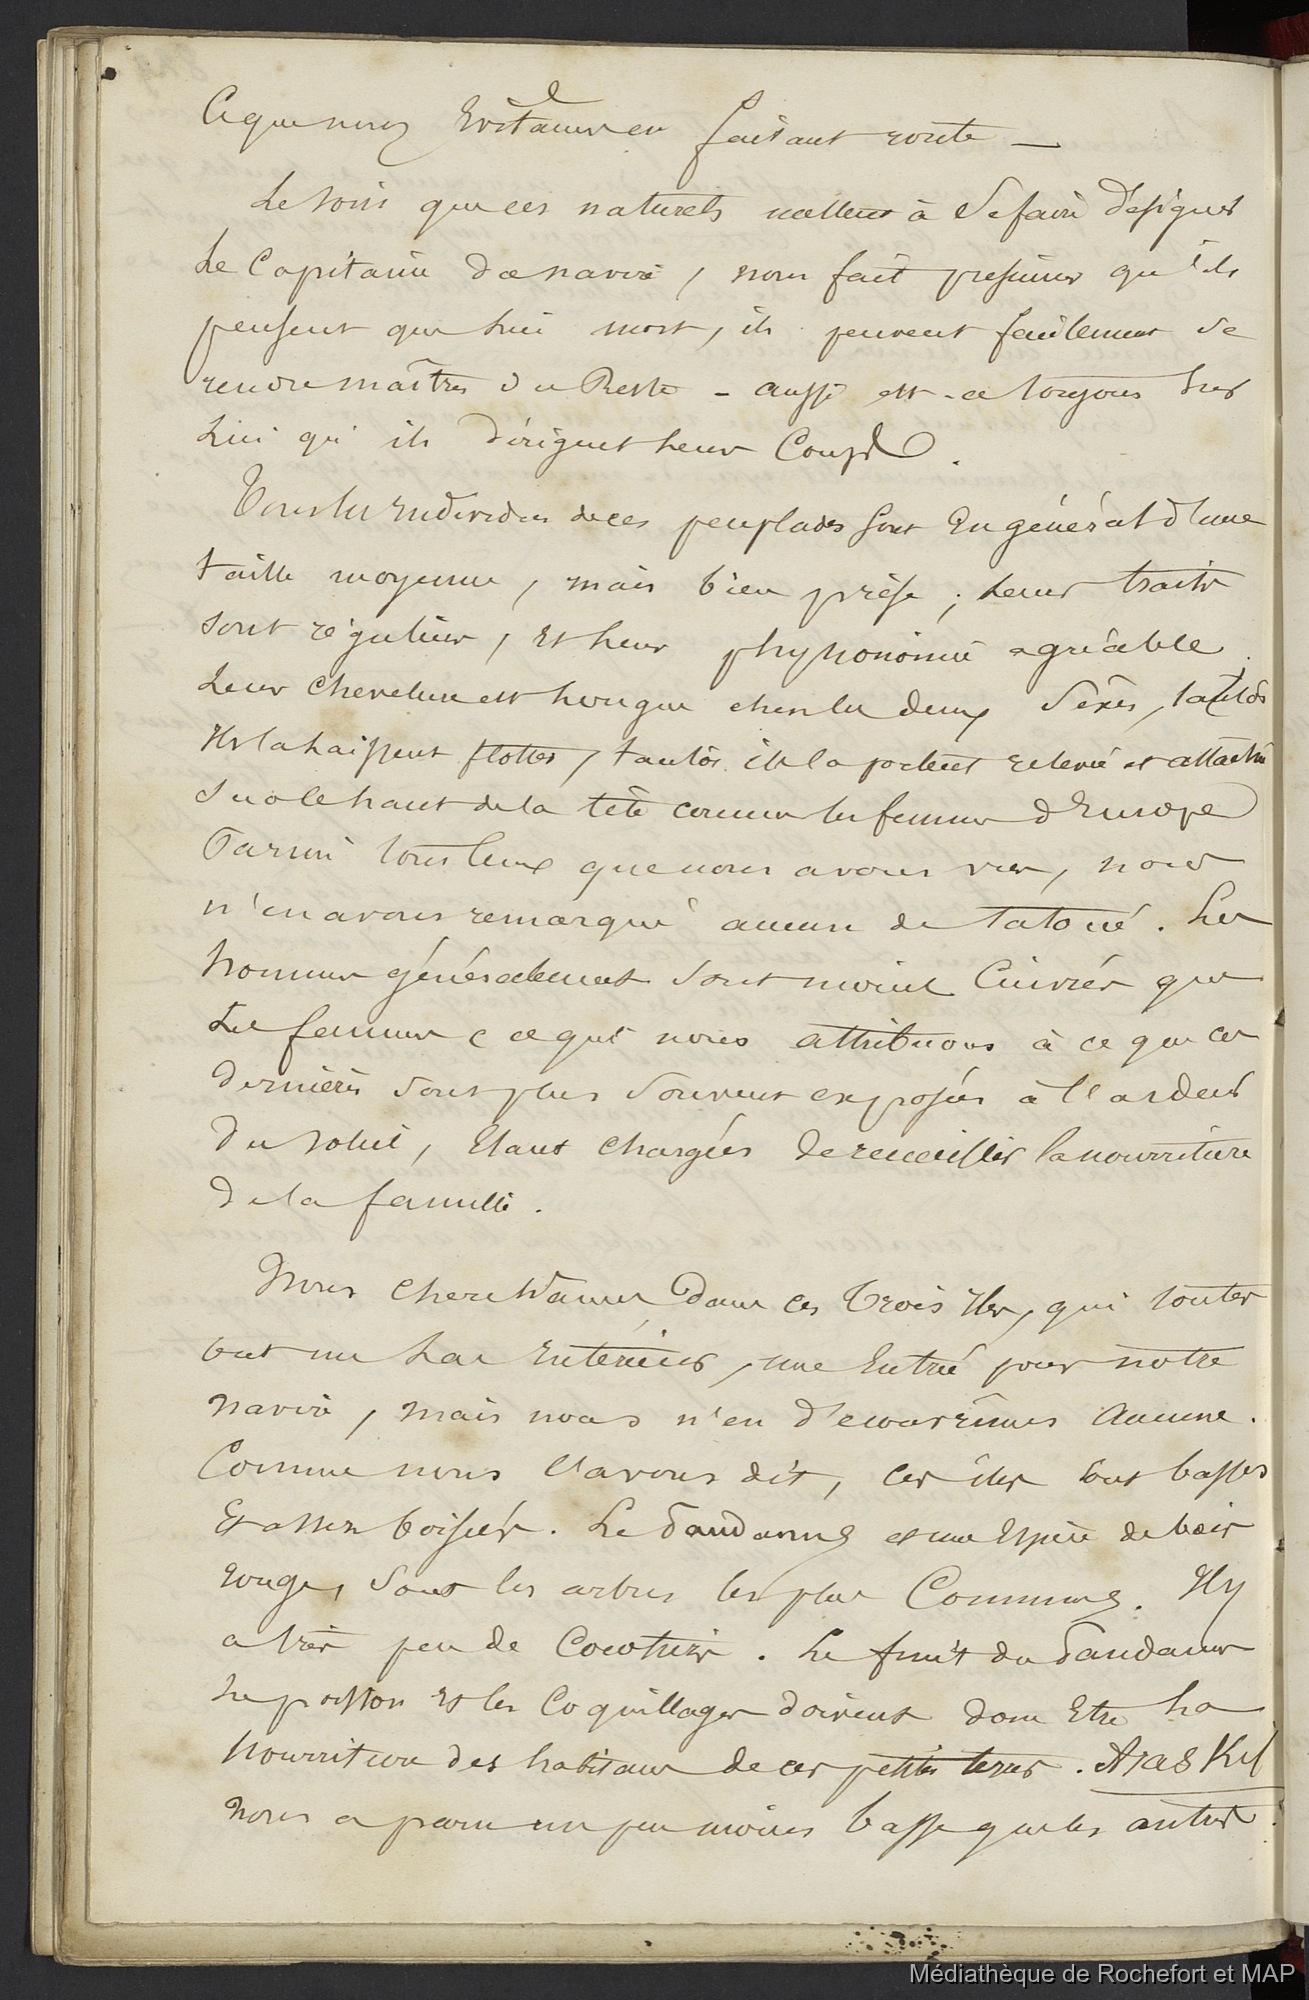 Ce que nous Evitames en faisant route —
Le soin que ces naturels mettent à se faire désigner
Le Capitaine du navire, nous fait présumer qu'ils
pensent que lui mort, ils peuvent facilement se
rendre maîtres du Reste - aussi est-ce toujours sur
Lui qu'ils dirigent leurs Coups.
Tous les individus de ces peuplades sont En général d'une
taille moyenne, mais bien prise ; leurs traits
sont réguliers, Et leur physionomie agréable.
Leur chevelure est longue chez les deux Sexes, tantôt
Ils la laissent flotter, tantôt ils la portent relevée et attachée
Sur le haut de la tête comme les femmes d'Europe
Parmi tous ceux que nous avons vus, nous
n'en avons remarqué aucun de tatoué. Les
hommes généralement sont moins Cuivrés que
Les femmes ce que nous attribuons à ce que ces
dernières sont plus Souvent exposées à l'ardeur
Du soleil, Etant chargées de recueillir la nourriture
De la famille.
Nous cherchames dans ces trois Iles, qui toutes
ont un Lac Intérieur, une Entrée pour notre
navire, mais nous n'en découvrîmes Aucune.
Comme nous l'avons dit, ces îles sont basses
Et assez boisées. Le Pandanus et une Espèce de bois
rouge, sont les arbres les plus Communs. Il y
a très peu de Cocotiers. Le fruit du Pandanus
Le poisson Et les Coquillages doivent donc Etre La
Nourriture des habitans de ces petites terres.
Nous a paru un peu moins basse que les autres
Médiathèque de Rochefort et MAP